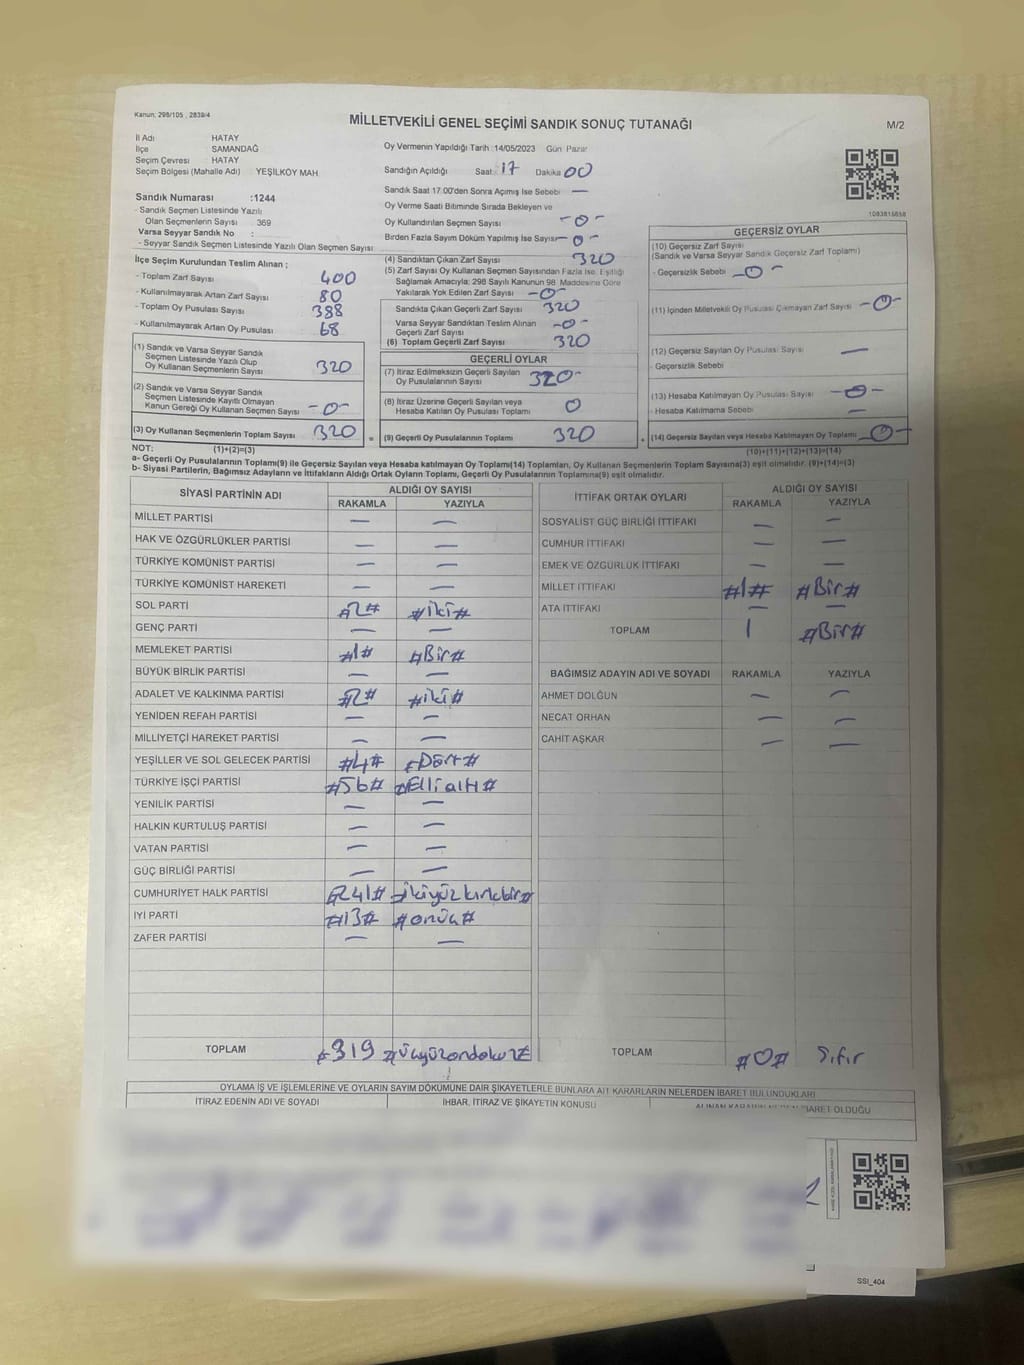 Kanun; 298/105 , 2839/4
MİLLETVEKİLİ GENEL SEÇİMİ SANDIK SONUÇ TUTANAĞI
M/2
İl Adı HATAY
İlçe SAMANDAĞ
Seçim Çevresi HATAY
Seçim Bölgesi (Mahalle Adı) YEŞİLKÖY MAH.
Oy Vermenin Yapıldığı Tarih :14/05/2023 Gün Pazar
Sandığın Açıldığı Saat: 17 Dakika 00
Sandık Saat 17.00'den Sonra Açımış İse Sebebi —
Oy Verme Saati Bitiminde Sırada Bekleyen ve
Oy Kullandırılan Seçmen Sayısı -0-
Birden Fazla Sayım Döküm Yapılmış İse Sayısı -0-
Sandık Numarası :1244
- Sandık Seçmen Listesinde Yazılı
Olan Seçmenlerin Sayısı 369
Varsa Seyyar Sandık No :
- Seyyar Sandık Seçmen Listesinde Yazılı Olan Seçmen Sayısı
İlçe Seçim Kurulundan Teslim Alınan ;
- Toplam Zarf Sayısı 400
- Kullanılmayarak Artan Zarf Sayısı 80
- Toplam Oy Pusulası Sayısı 388
- Kullanılmayarak Artan Oy Pusulası 68
(1) Sandık ve Varsa Seyyar Sandık
Seçmen Listesinde Yazılı Olup
Oy Kullanan Seçmenlerin Sayısı 320
(2) Sandık ve Varsa Seyyar Sandık
Seçmen Listesinde Kayıtlı Olmayan
Kanun Gereği Oy Kullanan Seçmen Sayısı -0-
(3) Oy Kullanan Seçmenlerin Toplam Sayısı 320
(4) Sandıktan Çıkan Zarf Sayısı 320
(5) Zarf Sayısı Oy Kullanan Seçmen Sayısından Fazla İse, Eşitliği
Sağlamak Amacıyla; 298 Sayılı Kanunun 98. Maddesine Göre
Yakılarak Yok Edilen Zarf Sayısı -0-
Sandıkta Çıkan Geçerli Zarf Sayısı 320
Varsa Seyyar Sandıktan Teslim Alınan -0-
Geçerli Zarf Sayısı
(6) Toplam Geçerli Zarf Sayısı 320
GEÇERLİ OYLAR
(7) İtiraz Edilmeksizin Geçerli Sayılan
Oy Pusulalarının Sayısı 320-
(8) İtiraz Üzerine Geçerli Sayılan veya
Hesaba Katılan Oy Pusulası Toplamı 0
= (9) Geçerli Oy Pusulalarının Toplamı 320
1083815658
GEÇERSİZ OYLAR
(10) Geçersiz Zarf Sayısı
(Sandık ve Varsa Seyyar Sandık Geçersiz Zarf Toplamı)
- Geçersizlik Sebebi -0-
(11) İçinden Milletvekili Oy Pusulası Çıkmayan Zarf Sayısı -0-
(12) Geçersiz Sayılan Oy Pusulası Sayısı —
- Geçersizlik Sebebi
(13) Hesaba Katılmayan Oy Pusulası Sayısı -0-
- Hesaba Katılmama Sebebi —
+ (14) Geçersiz Sayılan veya Hesaba Katılmayan Oy Toplamı -0-
NOT: (1)+(2)=(3) (10)+(11)+(12)+(13)=(14)
a- Geçerli Oy Pusulalarının Toplamı(9) ile Geçersiz Sayılan veya Hesaba katılmayan Oy Toplamı(14) Toplamları, Oy Kullanan Seçmenlerin Toplam Sayısına(3) eşit olmalıdır. (9)+(14)=(3)
b- Siyasi Partilerin, Bağımsız Adayların ve İttifakların Aldığı Ortak Oyların Toplamı, Geçerli Oy Pusulalarının Toplamına(9) eşit olmalıdır.
SİYASİ PARTİNİN ADI ALDIĞI OY SAYISI
RAKAMLA YAZIYLA
MİLLET PARTİSİ — —
HAK VE ÖZGÜRLÜKLER PARTİSİ — —
TÜRKİYE KOMÜNİST PARTİSİ — —
TÜRKİYE KOMÜNİST HAREKETİ — —
SOL PARTİ #2# #iki#
GENÇ PARTİ — —
MEMLEKET PARTİSİ #1# #Bir#
BÜYÜK BİRLİK PARTİSİ — —
ADALET VE KALKINMA PARTİSİ #2# #iki#
YENİDEN REFAH PARTİSİ — —
MİLLİYETÇİ HAREKET PARTİSİ — —
YEŞİLLER VE SOL GELECEK PARTİSİ #4# #Dört#
TÜRKİYE İŞÇİ PARTİSİ #56# #Ellialtı#
YENİLİK PARTİSİ — —
HALKIN KURTULUŞ PARTİSİ — —
VATAN PARTİSİ — —
GÜÇ BİRLİĞİ PARTİSİ — —
CUMHURİYET HALK PARTİSİ #241# #ikiyüzkırkbir#
İYİ PARTİ #13# #onüç#
ZAFER PARTİSİ — —
TOPLAM #319 #üçyüzondokuz#
İTTİFAK ORTAK OYLARI ALDIĞI OY SAYISI
RAKAMLA YAZIYLA
SOSYALİST GÜÇ BİRLİĞİ İTTİFAKI — —
CUMHUR İTTİFAKI — —
EMEK VE ÖZGÜRLÜK İTTİFAKI — —
MİLLET İTTİFAKI #1# #Bir#
ATA İTTİFAKI — —
TOPLAM 1 #Bir#
BAĞIMSIZ ADAYIN ADI VE SOYADI RAKAMLA YAZIYLA
AHMET DOLĞUN — —
NECAT ORHAN — —
CAHİT AŞKAR — —
TOPLAM #0# Sıfır
OYLAMA İŞ VE İŞLEMLERİNE VE OYLARIN SAYIM DÖKÜMÜNE DAİR ŞİKAYETLERLE BUNLARA AİT KARARLARIN NELERDEN İBARET BULUNDUKLARI
İTİRAZ EDENİN ADI VE SOYADI İHBAR, İTİRAZ VE ŞİKAYETİN KONUSU
İBARET OLDUĞU
SSİ_404